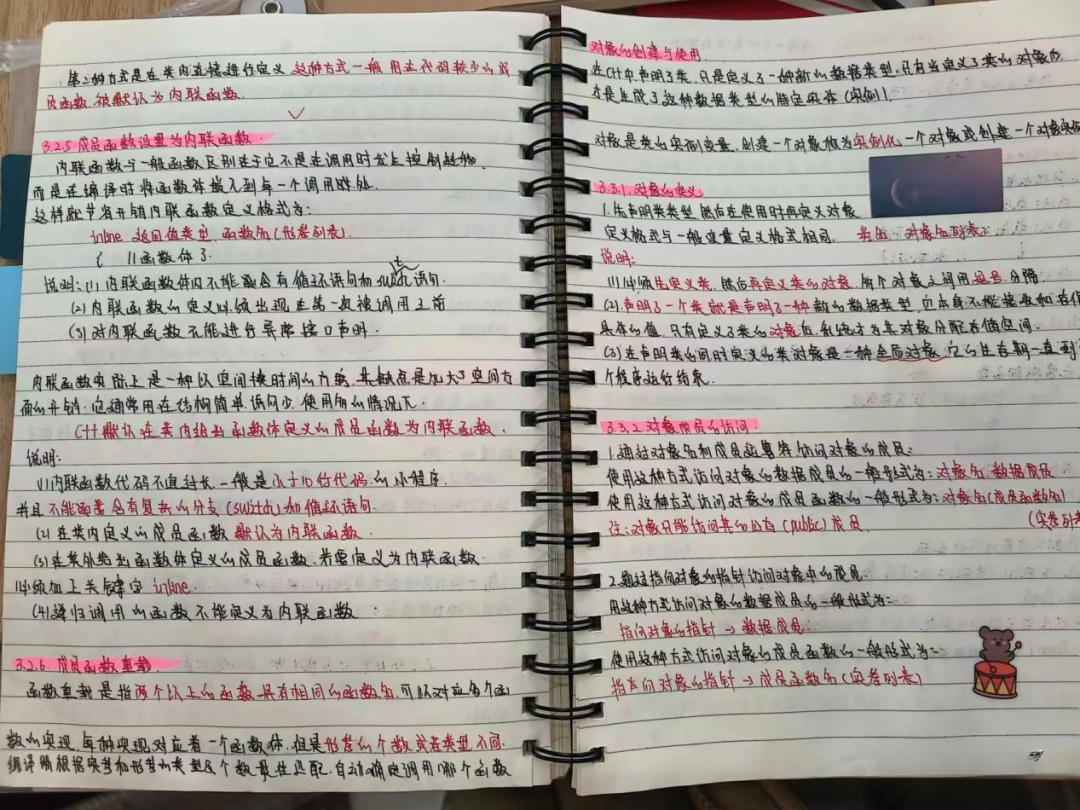 第二种方式是在类内直接进行定义 这种方式一般用在代码较少的成
员函数,被默认为内联函数.
3.2.5.成员函数设置为内联函数.
内联函数与一般函数区别在于它不是在调用时发生控制转移
而是在编译时将函数体嵌入到每一个调用语处.
这样就节省开销内联函数定义格式为:
inline 返回值类型 函数名(形参列表)
{ //函数体 }
说明:(1)内联函数体内不能含有循环语句和switch语句.
(2)内联函数的定义必须出现在第一次被调用之前
(3)对内联函数不能进行异常接口声明.
内联函数实际上是一种以空间换时间的方案,其缺点是加大了空间方
面的开销.它通常用在结构简单.语句少.使用多的情况下.
C++默认在类内给出函数体定义的成员函数为内联函数.
说明:
(1)内联函数代码不宜过长.一般是小于10行代码的小程序.
并且不能函数含有复杂的分支(switch)和循环语句.
(2)在类内定义的成员函数 默认为内联函数.
(3)在类外给出函数体定义的成员函数.若要定义为内联函数.
必须加上关键字 inline.
(4)递归调用的函数不能定义为内联函数
3.2.6.成员函数重载
函数重载是指两个以上的函数.具有相同的函数名,可以对应多个函
数的实现,每种实现对应着一个函数体,但是形参的个数或者类型不同.
编译器根据实参和形参的类型及个数最佳匹配.自动确定调用哪个函数
对象的创建与使用
在C++中,声明了类,只是定义了一种新的数据类型,只有当定义了类的对象后
才是生成了这种数据类型的特定实体(实例).
对象是类的实例变量,创建一个对象称为实例化一个对象或创建一个对象实例
3.3.1.对象的定义
1.先声明类类型,然后在使用时再定义对象
定义格式与一般变量定义格式相同. 类名 对象名列表;
说明:
(1)必须先定义类,然后再定义类的对象.每个对象之间用逗号分隔
(2)声明了一个类就是声明了一种新的数据类型,它本身不能接收和存储
具体的值,只有定义了类的对象后,系统才为其对象分配存储空间.
(3)在声明类的同时定义的类对象是一种全局对象,它的生存期一直到
个程序运行结束.
3.3.2.对象成员的访问
1.通过对象名和成员运算符访问对象的成员:
使用这种方式访问对象的数据成员的一般形式为:对象名.数据成员
使用这种方式访问对象的成员函数的一般形式为:对象名(成员函数名)
(实参列表
注:对象只能访问其的公有(public)成员.
2.通过指向对象的指针访问对象中的成员.
用这种方式访问对象的数据成员的一般形式为:
指向对象的指针→数据成员
使用这种方式访问对象的成员函数的一般形式为:
指向对象的指针→成员函数名(实参列表)